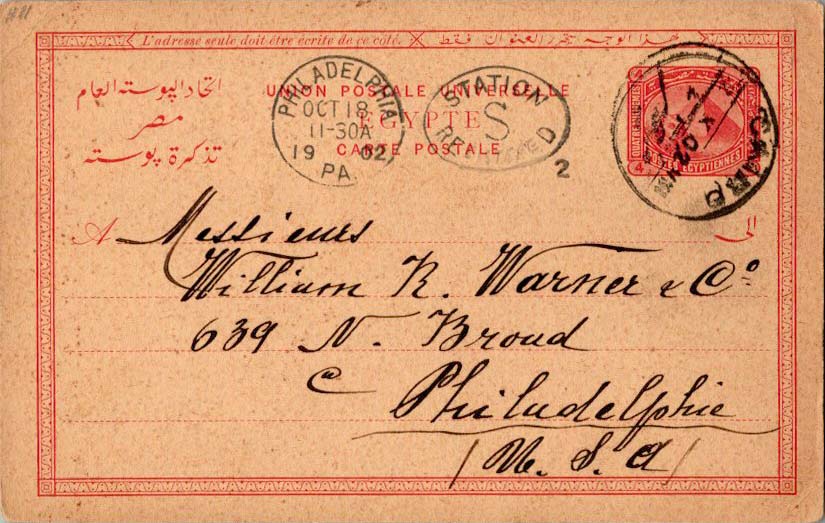 L'adresse seule doit être écrite de ce côté.
هذا الوجه يتحرر العنوان فقط
اتحاد البوستة العام
مصر
تذكرة بوستة
UNION POSTALE UNIVERSELLE
EGYPTE
CARTE POSTALE
PHILADELPHIA
OCT 18
11-30A
19 02
PA.
STATION
S
RECEIVED
2
CAIRO
POSTES EGYPTIENNES
4
A Messieurs الى
William R. Warner & Co
639 N. Broad
a Philadelphie
(U. S. A)